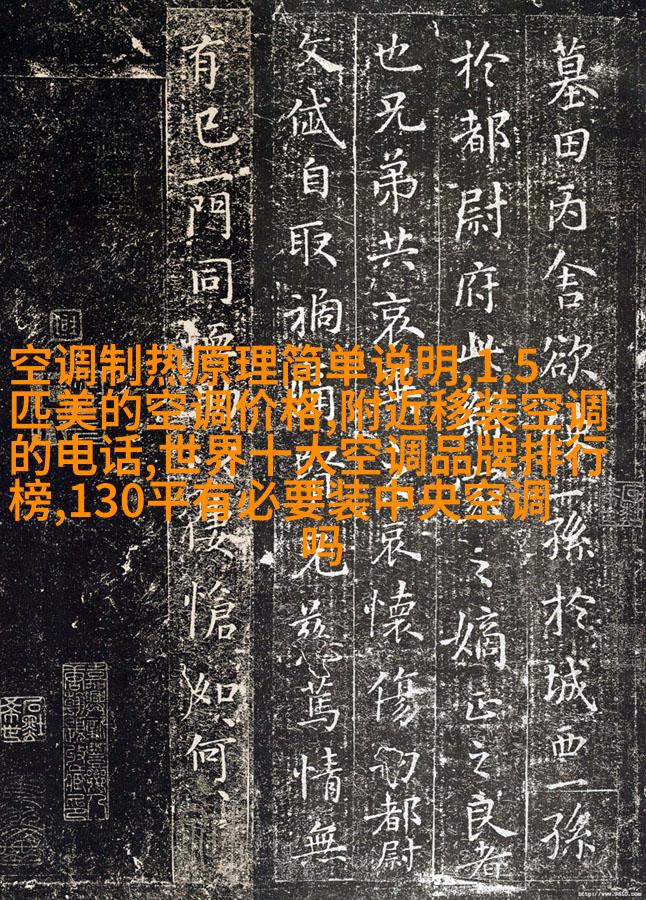 墓田丙舍欲一孫於城西一孫
於都尉府此之嫡正之良者
也兄弟共哀哀懷傷切都尉
文岱自取禍兄慈篤情無
有已一門同悽愴如何
空调制热原理简单说明,1.5
匹美的空调价格,附近移装空调
的电话,世界十大空调品牌排行
榜,130平有必要装中央空调
吗
http://www.9610.com